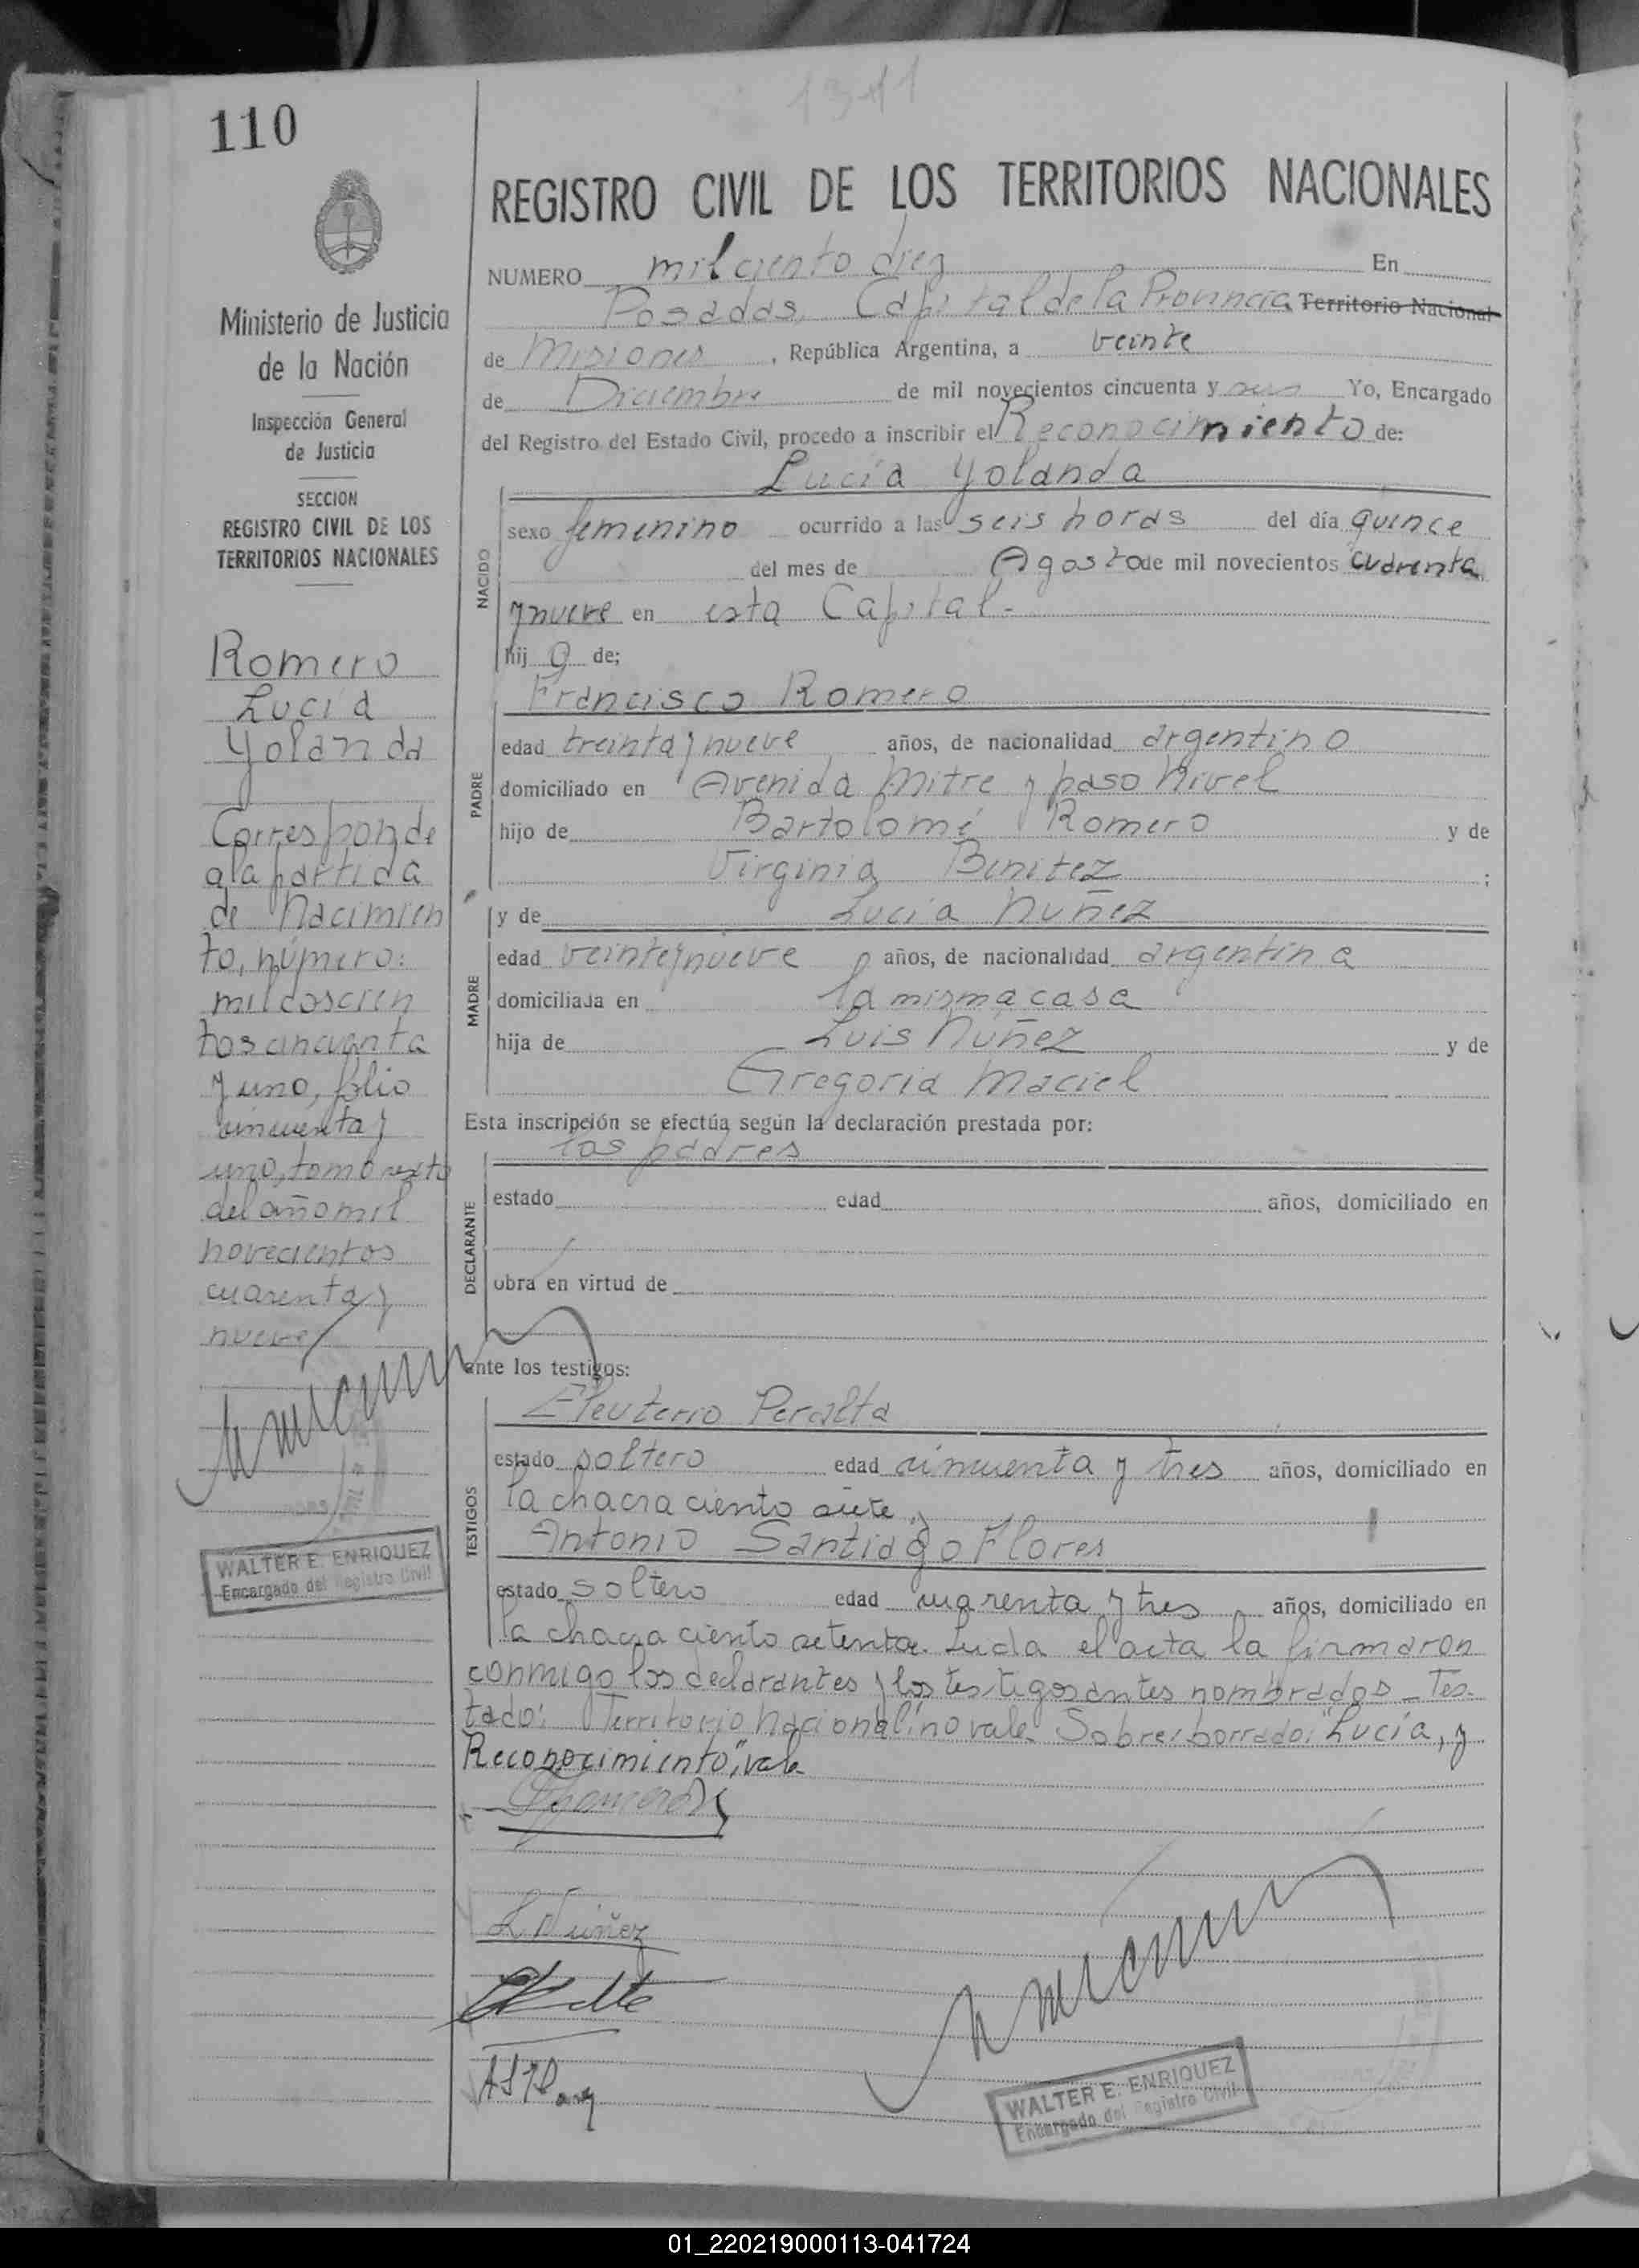 1311
110
REGISTRO CIVIL DE LOS TERRITORIOS NACIONALES
NUMERO mil ciento diez En
Posadas, Capital de la Provincia Territorio Nacional
de Misiones, República Argentina, a veinte
de Diciembre de mil novecientos cincuenta y seis Yo, Encargado
del Registro del Estado Civil, procedo a inscribir el Reconocimiento de:
Lucía Yolanda
NACIDO
sexo femenino ocurrido a las seis horas del día quince
del mes de Agosto de mil novecientos cuarenta
y nueve en esta Capital.-
hij a de;
Francisco Romero
PADRE
edad treinta y nueve años, de nacionalidad argentino
domiciliado en Avenida Mitre y paso Nivel
hijo de Bartolomé Romero y de
Virginia Benitez ;
y de Lucia Nuñez
MADRE
edad veinte y nueve años, de nacionalidad argentina
domiciliada en la misma casa
hija de Luis Nuñez y de
Gregoria Maciel
Esta inscripción se efectúa según la declaración prestada por:
los padres
DECLARANTE
estado edad años, domiciliado en
obra en virtud de
ante los testigos:
Eleuterio Peralta
TESTIGOS
estado soltero edad cincuenta y tres años, domiciliado en
la chacra ciento siete y
Antonio Santiago Flores
estado soltero edad cuarenta y tres años, domiciliado en
la chacra ciento setenta. Leida el acta la firmaron
conmigo los declarantes y los testigos antes nombrados - Tes-
tado: Territorio Nacional: no vale. Sobre borrado: "Lucía, y
Reconocimiento", vale
L Nuñez
WALTER E. ENRIQUEZ
Encargado del Registro Civil
Ministerio de Justicia
de la Nación
Inspección General
de Justicia
SECCION
REGISTRO CIVIL DE LOS
TERRITORIOS NACIONALES
Romero
Lucía
Yolanda
Corresponde
a la partida
de Nacimien
to, número:
mil doscien
tos cincuenta
y uno, folio
cincuenta y
uno, tomo sexto
del año mil
novecientos
cuarenta y
nueve
WALTER E. ENRIQUEZ
Encargado del Registro Civil
01_220219000113-041724